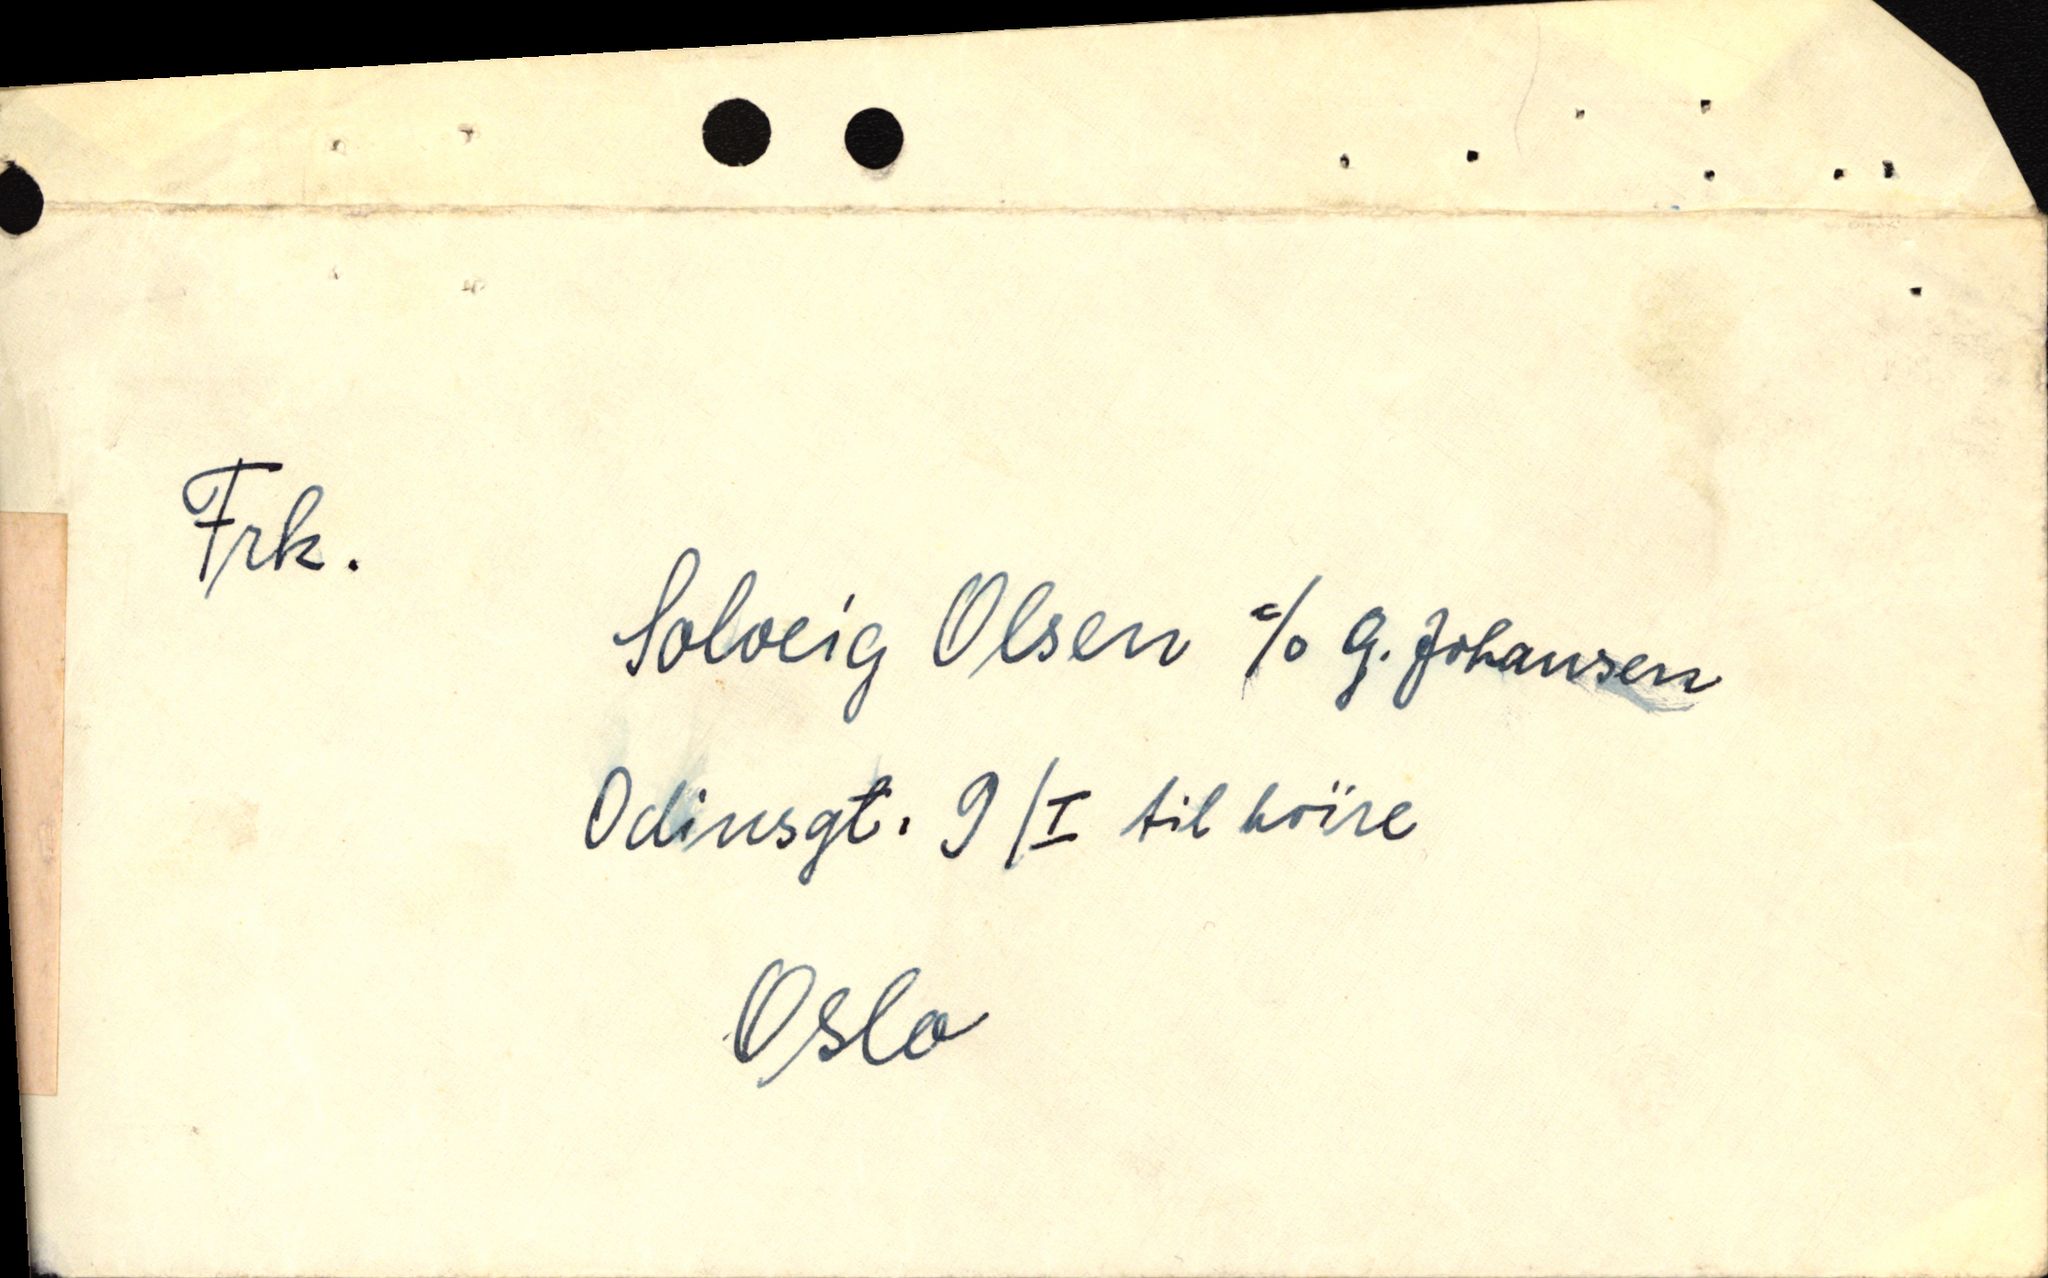 Frk.
Solveig Olsen c/o G. Johansen
Odinsgt. 9/I til höire
Oslo